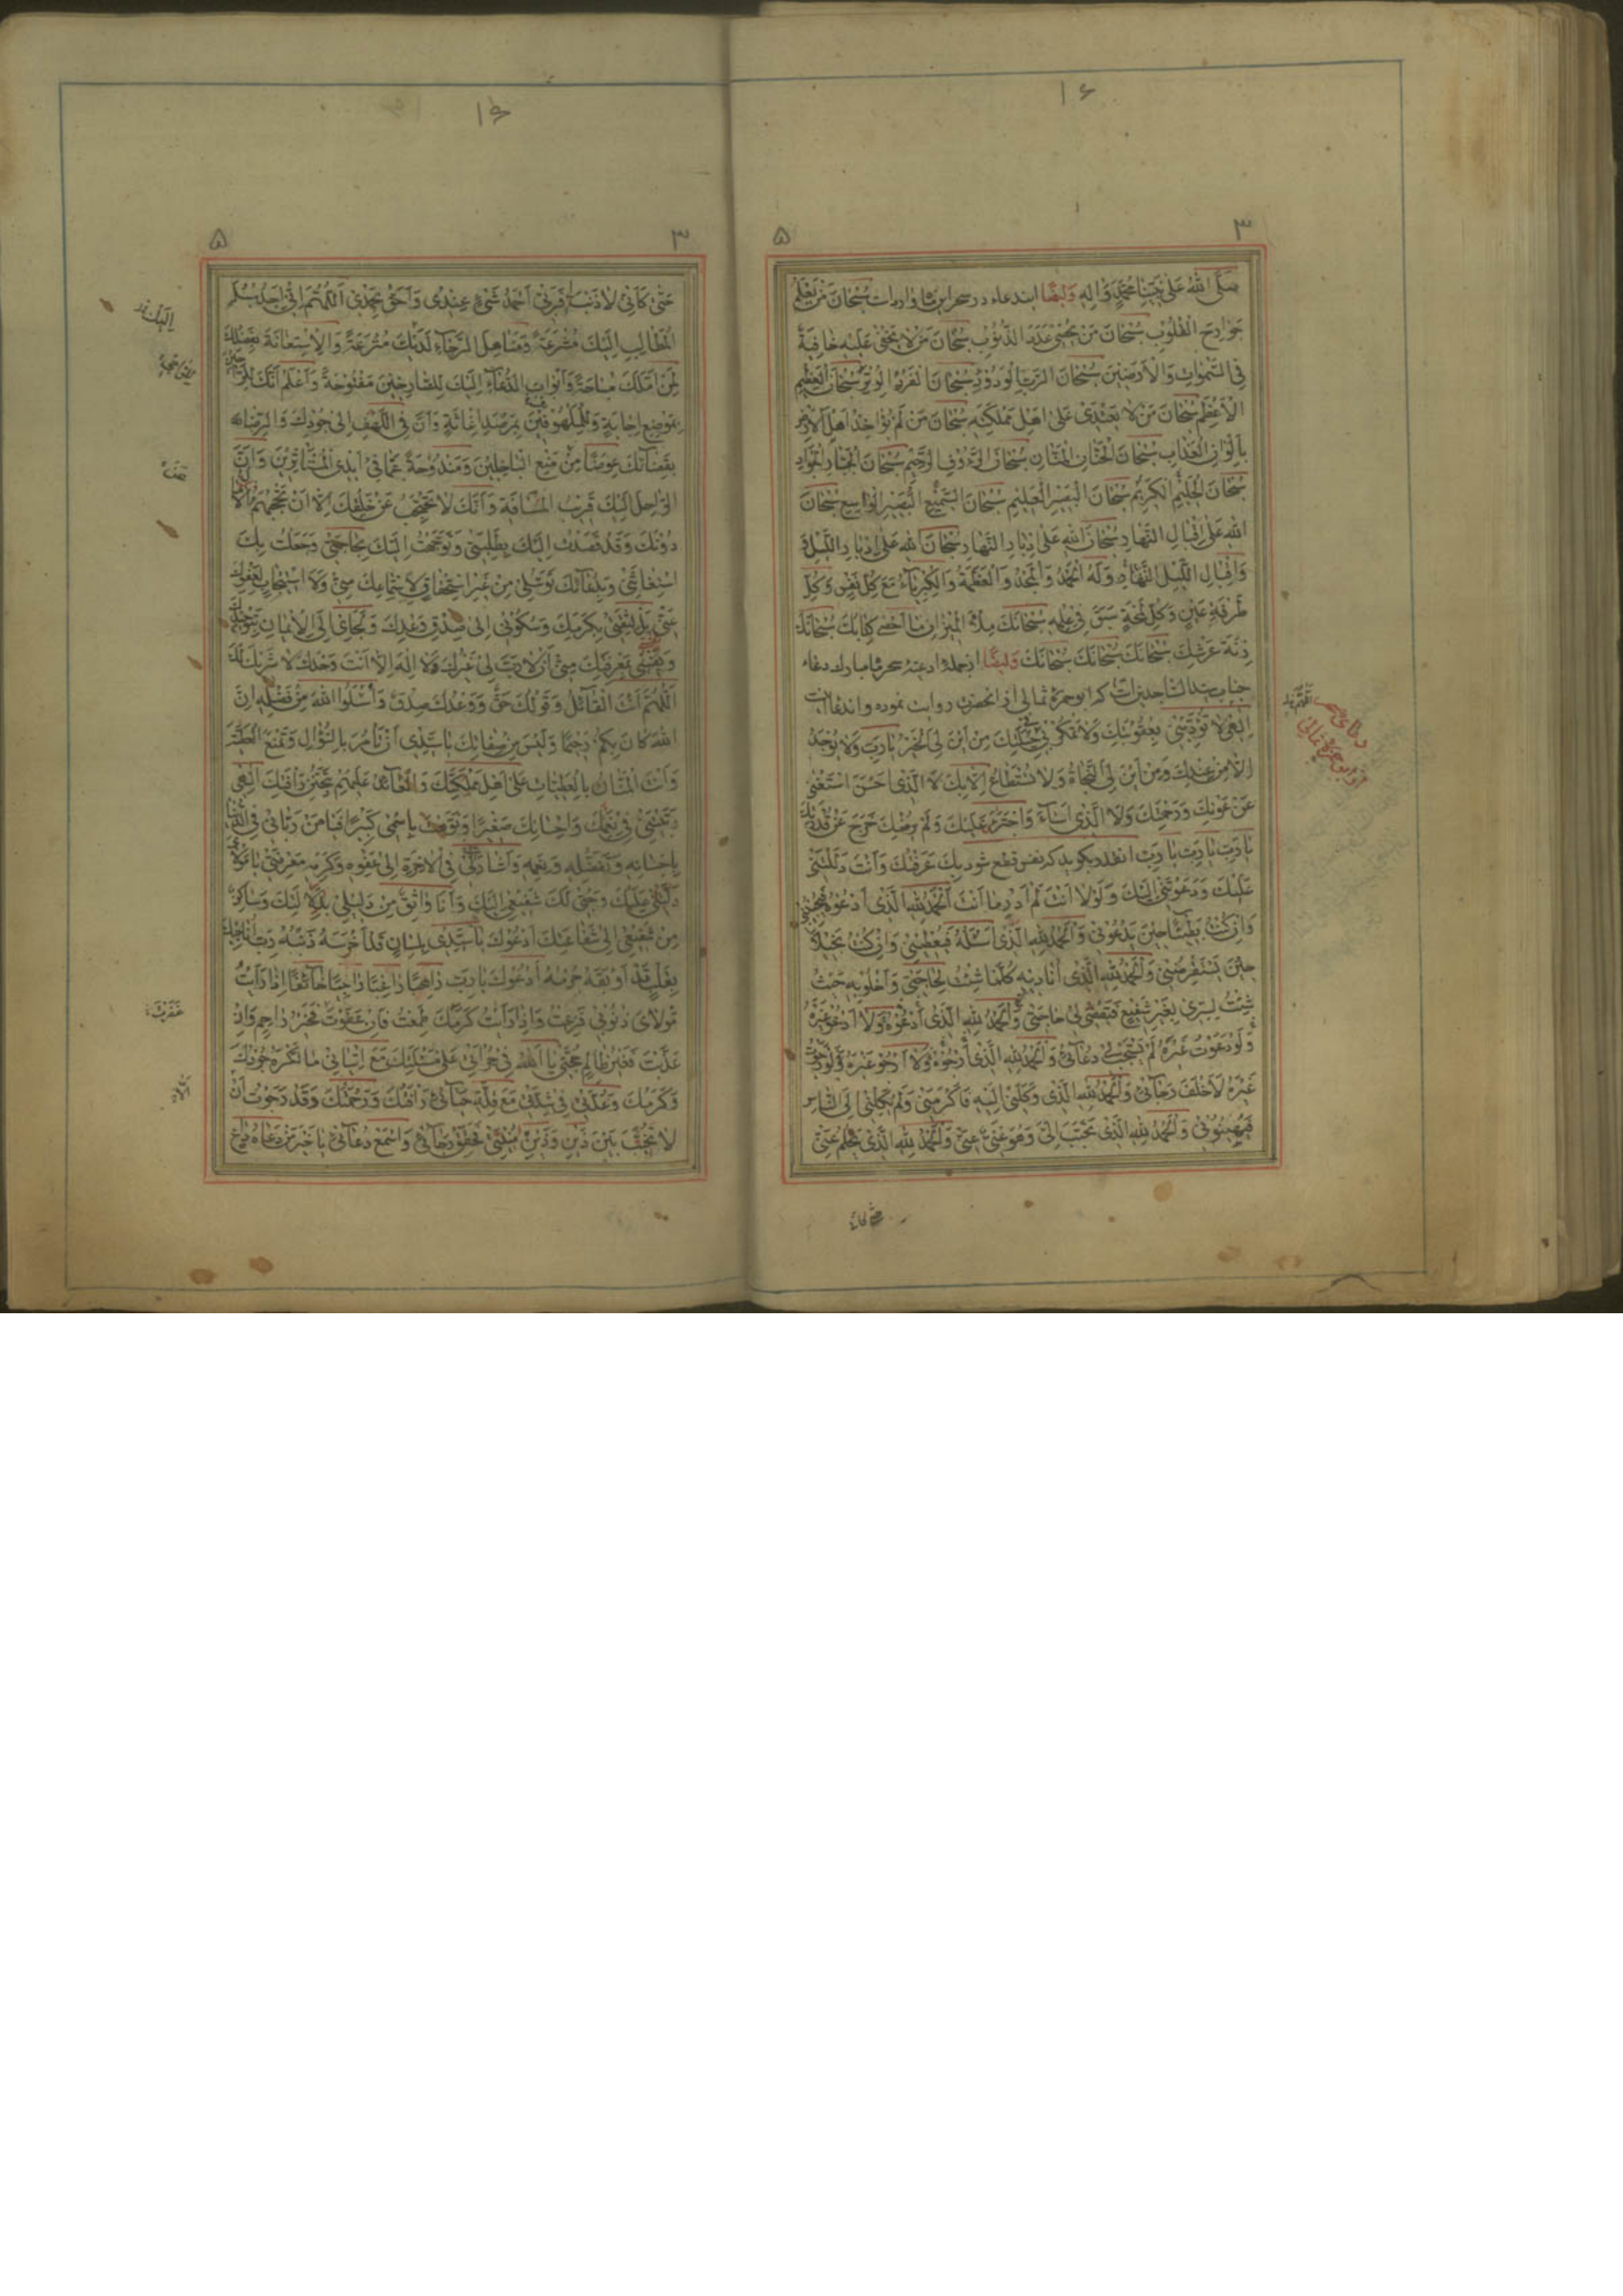 ۱۶
۳ ۵
صَلَّى اللهُ عَلٰى نَبِيِّنَا مُحَمَّدٍ وَاٰلِهِ وَايضًا ايندعاء در سحر اين شها وارد است سُبْحَانَ مَنْ يَعْلَمُ
جَوَارِحَ الْقُلُوبِ سُبْحَانَ مَنْ يُحْصِى عَدَدَ الذُّنُوبِ سُبْحَانَ مَنْ لَا يَخْفٰى عَلَيْهِ خَافِيَةٌ
فِى السَّمٰوَاتِ وَالْاَرَضِينَ سُبْحَانَ الرَّبِّ الْوَدُودِ سُبْحَانَ الْفَرْدِ الْوِتْرِ سُبْحَانَ الْعَظِيمِ
الْاَعْظَمِ سُبْحَانَ مَنْ لَا يَعْتَدِى عَلٰى اَهْلِ مَمْلَكَتِهِ سُبْحَانَ مَنْ لَمْ يُؤَاخِذْ اَهْلَ الْاَرْضِ
بِاَلْوَانِ الْعَذَابِ سُبْحَانَ الْحَنَّانِ الْمَنَّانِ سُبْحَانَ الرَّؤُفِ الرَّحِيمِ سُبْحَانَ الْجَبَّارِ الْجَوَادِ
سُبْحَانَ الْحَلِيمِ الْكَرِيمِ سُبْحَانَ الْبَصِيرِ الْعَلِيمِ سُبْحَانَ السَّمِيعِ الْبَصِيرِ الْوَاسِعِ سُبْحَانَ
اللهِ عَلٰى اِقْبَالِ النَّهَارِ سُبْحَانَ اللهِ عَلٰى اِدْبَارِ النَّهَارِ سُبْحَانَ اللهِ عَلٰى اِدْبَارِ اللَّيْلِ
وَاِقْبَالِ اللَّيْلِ النَّهَارِ وَلَهُ الْحَمْدُ وَالْمَجْدُ وَالْعَظَمَةُ وَالْكِبْرِيَاءُ مَعَ كُلِّ نَفَسٍ وَكُلِّ
طَرْفَةِ عَيْنٍ وَكُلِّ لَمْحَةٍ سَبَقَ فِى عِلْمِهِ سُبْحَانَكَ مِلْأَ الْمِيزَانِ مَا اَحْصٰى كِتَابُكَ سُبْحَانَكَ
زِنَةَ عَرْشِكَ سُبْحَانَكَ سُبْحَانَكَ سُبْحَانَكَ وَايضًا ازجمله ادعيه سحر شها مبارك دعاء
جناب سيد الساجدين است كه ابوحمزه ثمالى از انحضرت روايت نموده و اندعا اينست
اِلٰهِى لَا تُؤَدِّبْنِى بِعُقُوبَتِكَ وَلَا تَمْكُرْ بِى فِى حِيلَتِكَ مِنْ اَيْنَ لِىَ الْخَيْرُ يَا رَبِّ وَلَا يُوجَدُ
اِلَّا مِنْ عِنْدِكَ وَمِنْ اَيْنَ لِىَ النَّجَاةُ وَلَا تُسْتَطَاعُ اِلَّا بِكَ لَا الَّذِى اَحْسَنَ اسْتَغْنٰى
عَنْ عَوْنِكَ وَرَحْمَتِكَ وَلَا الَّذِى اَسَاءَ وَاجْتَرَءَ عَلَيْكَ وَلَمْ يُرْضِكَ خَرَجَ عَنْ قُدْرَتِكَ
يَا رَبِّ يَا رَبِّ يَا رَبِّ انقدر بگويد كه نفس قطع شود بِكَ عَرَفْتُكَ وَاَنْتَ دَلَلْتَنِى
عَلَيْكَ وَدَعَوْتَنِى اِلَيْكَ وَلَوْلَا اَنْتَ لَمْ اَدْرِ مَا اَنْتَ اَلْحَمْدُ لِلّٰهِ الَّذِى اَدْعُوهُ فَيُجِيبُنِى
وَاِنْ كُنْتُ بَطِيئًا حِينَ يَدْعُونِى وَالْحَمْدُ لِلّٰهِ الَّذِى اَسْئَلُهُ فَيُعْطِينِى وَاِنْ كُنْتُ بَخِيلًا
حِينَ يَسْتَقْرِضُنِى وَالْحَمْدُ لِلّٰهِ الَّذِى اُنَادِيهِ كُلَّمَا شِئْتُ لِحَاجَتِى وَاَخْلُو بِهِ حَيْثُ
شِئْتُ لِسِرِّى بِغَيْرِ شَفِيعٍ فَيَقْضِى لِى حَاجَتِى وَالْحَمْدُ لِلّٰهِ الَّذِى اَدْعُوهُ وَلَا اَدْعُو غَيْرَهُ
وَلَوْ دَعَوْتُ غَيْرَهُ لَمْ يَسْتَجِبْ لِى دُعَائِى وَالْحَمْدُ لِلّٰهِ الَّذِى اَرْجُوهُ وَلَا اَرْجُو غَيْرَهُ وَلَوْ رَجَوْتُ
غَيْرَهُ لَاَخْلَفَ رَجَائِى وَالْحَمْدُ لِلّٰهِ الَّذِى وَكَلَنِى اِلَيْهِ فَاَكْرَمَنِى وَلَمْ يَكِلْنِى اِلَى النَّاسِ
فَيُهِينُونِى وَالْحَمْدُ لِلّٰهِ الَّذِى تَحَبَّبَ اِلَىَّ وَهُوَ غَنِىٌّ عَنِّى وَالْحَمْدُ لِلّٰهِ الَّذِى يَحْلُمُ عَنِّى
دعاى سحر
ابوحمزه ثمالى
۳ ۵
حَتّٰى كَاَنِّى لَا ذَنْبَ لِى فَرَبِّى اَحْمَدُ شَىْءٍ عِنْدِى وَاَحَقُّ بِحَمْدِى اَللّٰهُمَّ اِنِّى اَجِدُ سُبُلَ
الْمَطَالِبِ اِلَيْكَ مُشْرَعَةً وَمَنَاهِلَ الرَّجَاءِ لَدَيْكَ مُتْرَعَةً وَالْاِسْتِعَانَةَ بِفَضْلِكَ
لِمَنْ اَمَّلَكَ مُبَاحَةً وَاَبْوَابَ الدُّعَاءِ اِلَيْكَ لِلصَّارِخِينَ مَفْتُوحَةً وَاَعْلَمُ اَنَّكَ لِلرَّاجِينَ
بِمَوْضِعِ اِجَابَةٍ وَلِلْمَلْهُوفِينَ بِمَرْصَدِ اِغَاثَةٍ وَاَنَّ فِى اللَّهْفِ اِلٰى جُودِكَ وَالرِّضَا
بِقَضَائِكَ عِوَضًا مِنْ مَنْعِ الْبَاخِلِينَ وَمَنْدُوحَةً عَمَّا فِى اَيْدِى الْمُسْتَأْثِرِينَ وَاَنَّ
الرَّاحِلَ اِلَيْكَ قَرِيبُ الْمَسَافَةِ وَاَنَّكَ لَا تَحْتَجِبُ عَنْ خَلْقِكَ اِلَّا اَنْ تَحْجُبَهُمُ الْاٰمَالُ
دُونَكَ وَقَدْ قَصَدْتُ اِلَيْكَ بِطَلِبَتِى وَتَوَجَّهْتُ اِلَيْكَ بِحَاجَتِى وَجَعَلْتُ بِكَ
اسْتِغَاثَتِى وَبِدُعَائِكَ تَوَسُّلِى مِنْ غَيْرِ اسْتِحْقَاقٍ لِاسْتِمَاعِكَ مِنِّى وَلَا اسْتِيجَابٍ لِعَفْوِكَ
عَنِّى بَلْ لِثِقَتِى بِكَرَمِكَ وَسُكُونِى اِلٰى صِدْقِ وَعْدِكَ وَلَجَائِى اِلَى الْاِيمَانِ بِتَوْحِيدِكَ
وَيَقِينِى بِمَعْرِفَتِكَ مِنِّى اَنْ لَا رَبَّ لِى غَيْرُكَ وَلَا اِلٰهَ اِلَّا اَنْتَ وَحْدَكَ لَا شَرِيكَ لَكَ
اَللّٰهُمَّ اَنْتَ الْقَائِلُ وَقَوْلُكَ حَقٌّ وَوَعْدُكَ صِدْقٌ وَاسْئَلُوا اللهَ مِنْ فَضْلِهِ اِنَّ
اللهَ كَانَ بِكُمْ رَحِيمًا وَلَيْسَ مِنْ صِفَاتِكَ يَا سَيِّدِى اَنْ تَأْمُرَ بِالسُّؤَالِ وَتَمْنَعَ الْعَطِيَّةَ
وَاَنْتَ الْمَنَّانُ بِالْعَطِيَّاتِ عَلٰى اَهْلِ مَمْلَكَتِكَ وَالْعَائِدُ عَلَيْهِمْ بِتَحَنُّنِ رَأْفَتِكَ اِلٰهِى
رَبَّيْتَنِى فِى نِعَمِكَ وَاِحْسَانِكَ صَغِيرًا وَنَوَّهْتَ بِاسْمِى كَبِيرًا فَيَا مَنْ رَبَّانِى فِى الدُّنْيَا
بِاِحْسَانِهِ وَتَفَضُّلِهِ وَنِعَمِهِ وَاَشَارَ لِى فِى الْاٰخِرَةِ اِلٰى عَفْوِهِ وَكَرَمِهِ مَعْرِفَتِى يَا مَوْلَاىَ
دَلِيلِى عَلَيْكَ وَحُبِّى لَكَ شَفِيعِى اِلَيْكَ وَاَنَا وَاثِقٌ مِنْ دَلِيلِى بِدَلَالَتِكَ وَسَاكِنٌ
مِنْ شَفِيعِى اِلٰى شَفَاعَتِكَ اَدْعُوكَ يَا سَيِّدِى بِلِسَانٍ قَدْ اَخْرَسَهُ ذَنْبُهُ رَبِّ اُنَاجِيكَ
بِقَلْبٍ قَدْ اَوْبَقَهُ جُرْمُهُ اَدْعُوكَ يَا رَبِّ رَاهِبًا رَاغِبًا رَاجِيًا خَائِفًا اِذَا رَاَيْتُ
مَوْلَاىَ ذُنُوبِى فَزِعْتُ وَاِذَا رَاَيْتُ كَرَمَكَ طَمِعْتُ فَاِنْ عَفَوْتَ فَخَيْرُ رَاحِمٍ وَاِنْ
عَذَّبْتَ فَغَيْرُ ظَالِمٍ حُجَّتِى يَا اَللهُ فِى جُرْاَتِى عَلٰى مَسْئَلَتِكَ مَعَ اِتْيَانِى مَا تَكْرَهُ جُودُكَ
وَكَرَمُكَ وَعُدَّتِى فِى شِدَّتِى مَعَ قِلَّةِ حَيَائِى رَأْفَتُكَ وَرَحْمَتُكَ وَقَدْ رَجَوْتُ اَنْ
لَا تُخَيِّبَ بَيْنَ ذَيْنِ وَذَيْنِ مُنْيَتِى فَحَقِّقْ رَجَائِى وَاسْمَعْ دُعَائِى يَا خَيْرَ مَنْ دَعَاهُ دَاعٍ